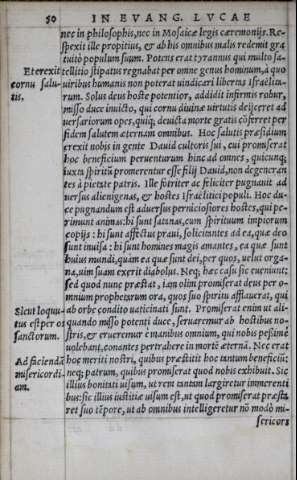 50 IN EVANG. LVCAE
nec in philosophis, nec in Mosaicæ legis cæremonijs. Re-
spexit ille propitius, & ab his omnibus malis redemit gra
tuitò populum suum. Potens erat tyrannus qui multo sa-
Et erexit
cornu salu
tis.
tellitio stipatus regnabat per omne genus hominum, à quo
viribus humanis non poterat uindicari libertas Israëlita-
rum. Solus deus hoste potentior, addidit infirmis robur,
misso duce inuicto, qui cornu diuinæ uirtutis deijceret ad
uersariorum opes, quiq; deuicta morte gratis cōferret per
fidem salutem æternam omnibus. Hoc salutis præsidium
erexit nobis in gente Dauid cultoris sui, cui promiserat
hoc beneficium peruenturum hinc ad omnes, quicunq;
iuxta spiritū promerentur esse filij Dauid, non degeneran
tes à pietate patris. Ille fortiter ac feliciter pugnauit ad
uersus alienigenas, & hostes Israëlitici populi. Hoc du-
ce pugnandum est aduersus perniciosiores hostes, qui pe-
rimunt animas: hi sunt satanas, cum spirituum impiorum
copijs: hi sunt affectus praui, solicitantes ad ea, quæ deo
sunt inuisa: hi sunt homines magis amantes, ea quæ sunt
huius mundi, quàm ea quæ sunt dei, per quos, uelut orga-
na, uim suam exerit diabolus. Neq; hæc casu sic eueniunt:
sed quod nunc præstat, iam olim promiserat deus per o-
mnium prophetarum ora, quos suo spiritu afflauerat, qui
Sicut loquu-
tus est per os
sanctorum.
ab orbe condito uaticinati sunt. Promiserat enim ut ali-
quando misso potenti duce, seruaremur ab hostibus no-
stris, & erueremur è manibus omnium, qui nobis pessimè
uolebant, conantes pertrahere in mortē æternā. Nec erat
Ad faciendā
misericordi-
am.
hoc meriti nostri, quibus præstitit hoc tantum beneficiū:
neq; patrum, quibus promiserat quod nobis exhibuit. Sic
illius bonitati uisum, ut rem tantam largiretur immerenti
bus: sic illius iustitiæ uisum est, ut quod promiserat præsta
ret suo tēpore, ut ab omnibus intelligeretur nō modò mi-
sericors